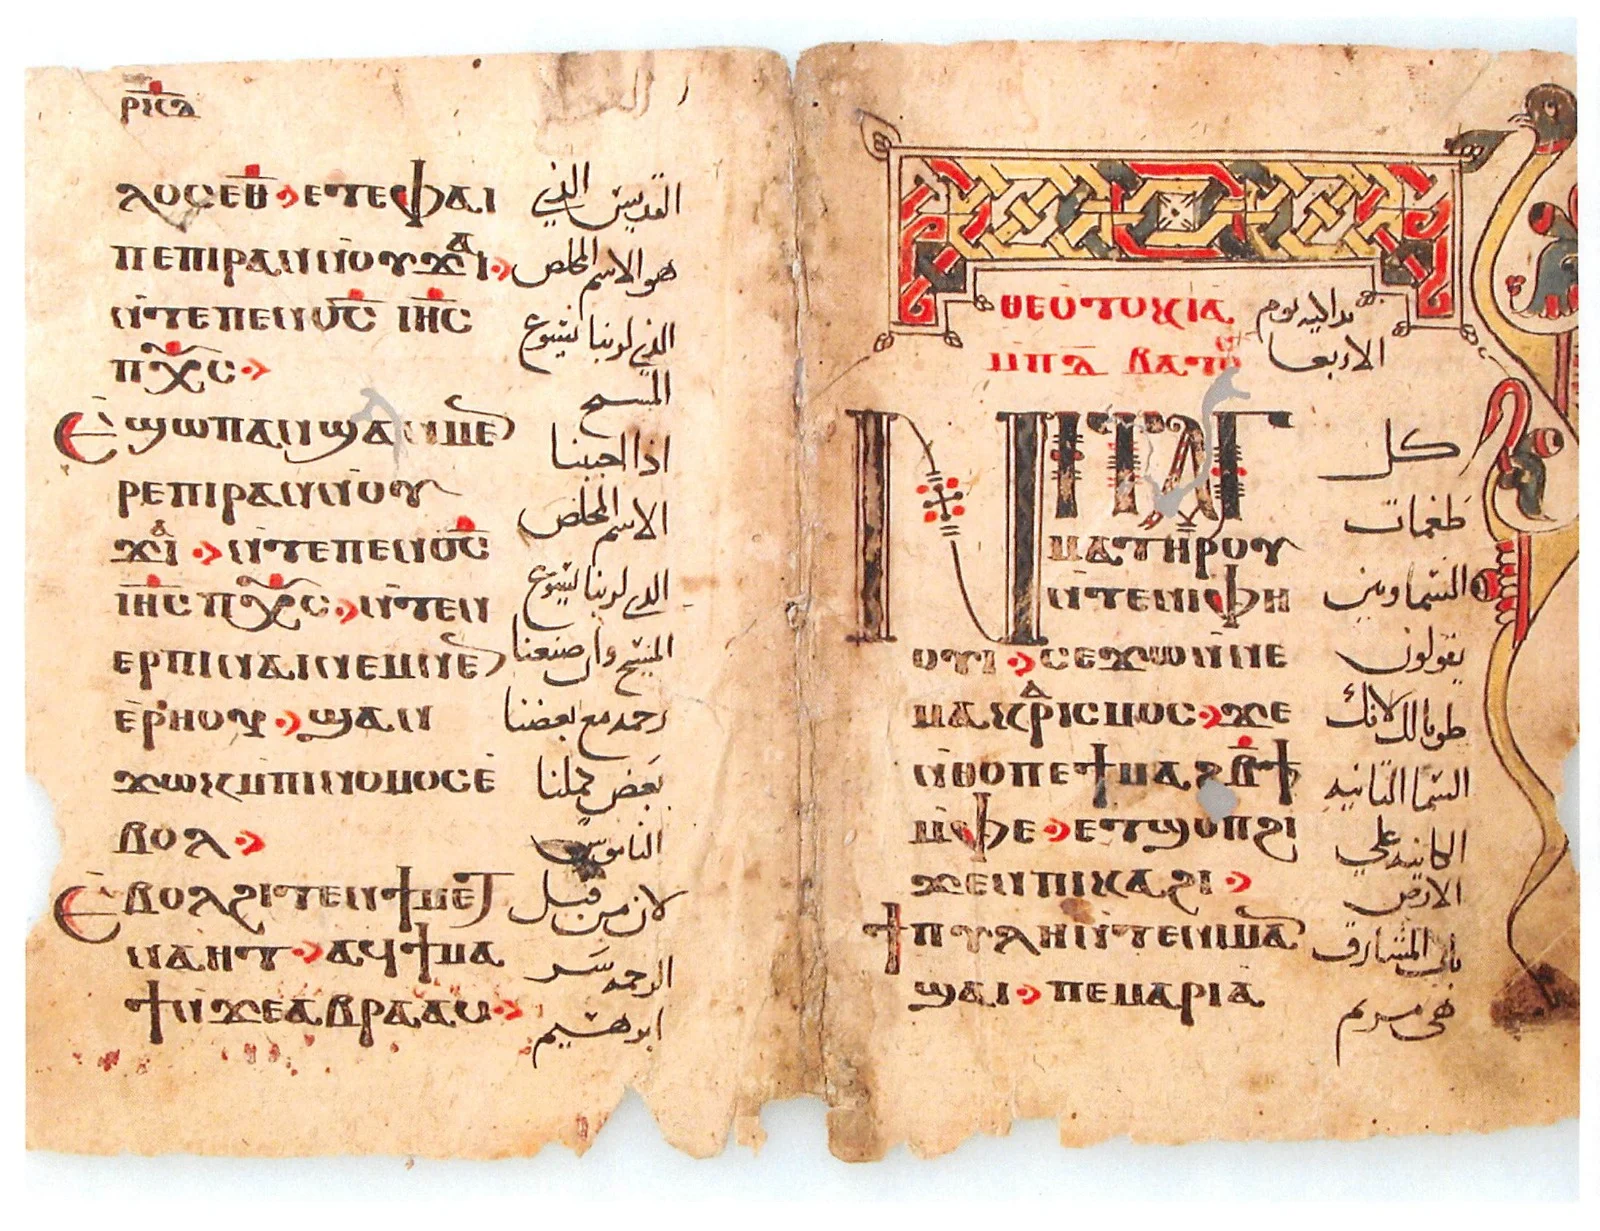 ⲣⲓⲥⲇ
ⲗⲟⲥ ⲉⲑ ⲉⲧⲉ ⲫⲁⲓ
ⲡⲉ ⲡⲓⲣⲁⲛ ⲛ̀ⲛⲟⲩϫⲁⲓ
ⲛ̀ⲧⲉ ⲡⲉⲛⲟ̅ⲥ̅ ⲓⲏ̅ⲥ̅
ⲡⲭ̅ⲥ̅
ⲉ̀ϣⲱⲡ ⲁⲛϣⲁⲛⲙⲉ
ⲣⲉ ⲡⲓⲣⲁⲛ ⲛ̀ⲛⲟⲩ
ϫⲁⲓ ⲛ̀ⲧⲉ ⲡⲉⲛⲟ̅ⲥ̅
ⲓⲏ̅ⲥ̅ ⲡⲭ̅ⲥ̅ ⲛ̀ⲧⲉⲛ
ⲉⲣⲡⲓⲛⲁⲓ ⲛⲉⲙ ⲛⲉ
ⲉ̀ⲣⲏⲟⲩ ϣⲁⲛ
ϫⲱⲕ ⲙ̀ⲡⲓⲛⲟⲙⲟⲥ ⲉ̀
ⲃⲟⲗ
ⲉ̀ⲃⲟⲗϩⲓⲧⲉⲛ ϯⲙⲉⲧ
ⲛⲁⲏⲧ ⲁϥϯⲙⲁ
ϯ ⲛ̀ϫⲉ ⲁⲃⲣⲁⲁⲙ
القديس الذي
هو الاسم المخلص
الذي لربنا يسوع
المسيح
اذا احببنا
الاسم المخلص
الذي لربنا يسوع
المسيح وان صنعنا
رحمه مع بعضنا
بعض كملنا
الناموس
لان من قبل
الرحمه سر
ابرهيم
ⲑⲉⲟⲧⲟⲕⲓⲁ
ⲙⲡⲉ̅ϩ̅ⲃⲁⲧⲟⲩ
ⲛⲓⲧⲁⲅ
ⲙⲁ ⲧⲏⲣⲟⲩ
ⲛ̀ⲧⲉ ⲛⲓⲫⲏ
ⲟⲩⲓ ⲥⲉϫⲱ ⲛ̀ⲛⲉ
ⲙⲁⲕⲁⲣⲓⲥⲙⲟⲥ ϫⲉ
ⲛ̀ⲑⲟ ⲡⲉ ϯⲙⲁϩⲃ̅ϯ
ⲙ̀ⲫⲉ ⲉⲧϣⲟⲡ ϩⲓ
ϫⲉⲛ ⲡⲓⲕⲁϩⲓ
ϯⲡⲩⲗⲏ ⲛ̀ⲧⲉ ⲛⲓⲙⲁ
ϣⲁⲓ ⲡⲉ ⲙⲁⲣⲓⲁ
تداكيه يوم
الاربعا
كل
طغمات
السماويين
يقولون
طوباك لانك
السما الثانيه
الكاينه علي
الارض
باب المشارق
هي مريم